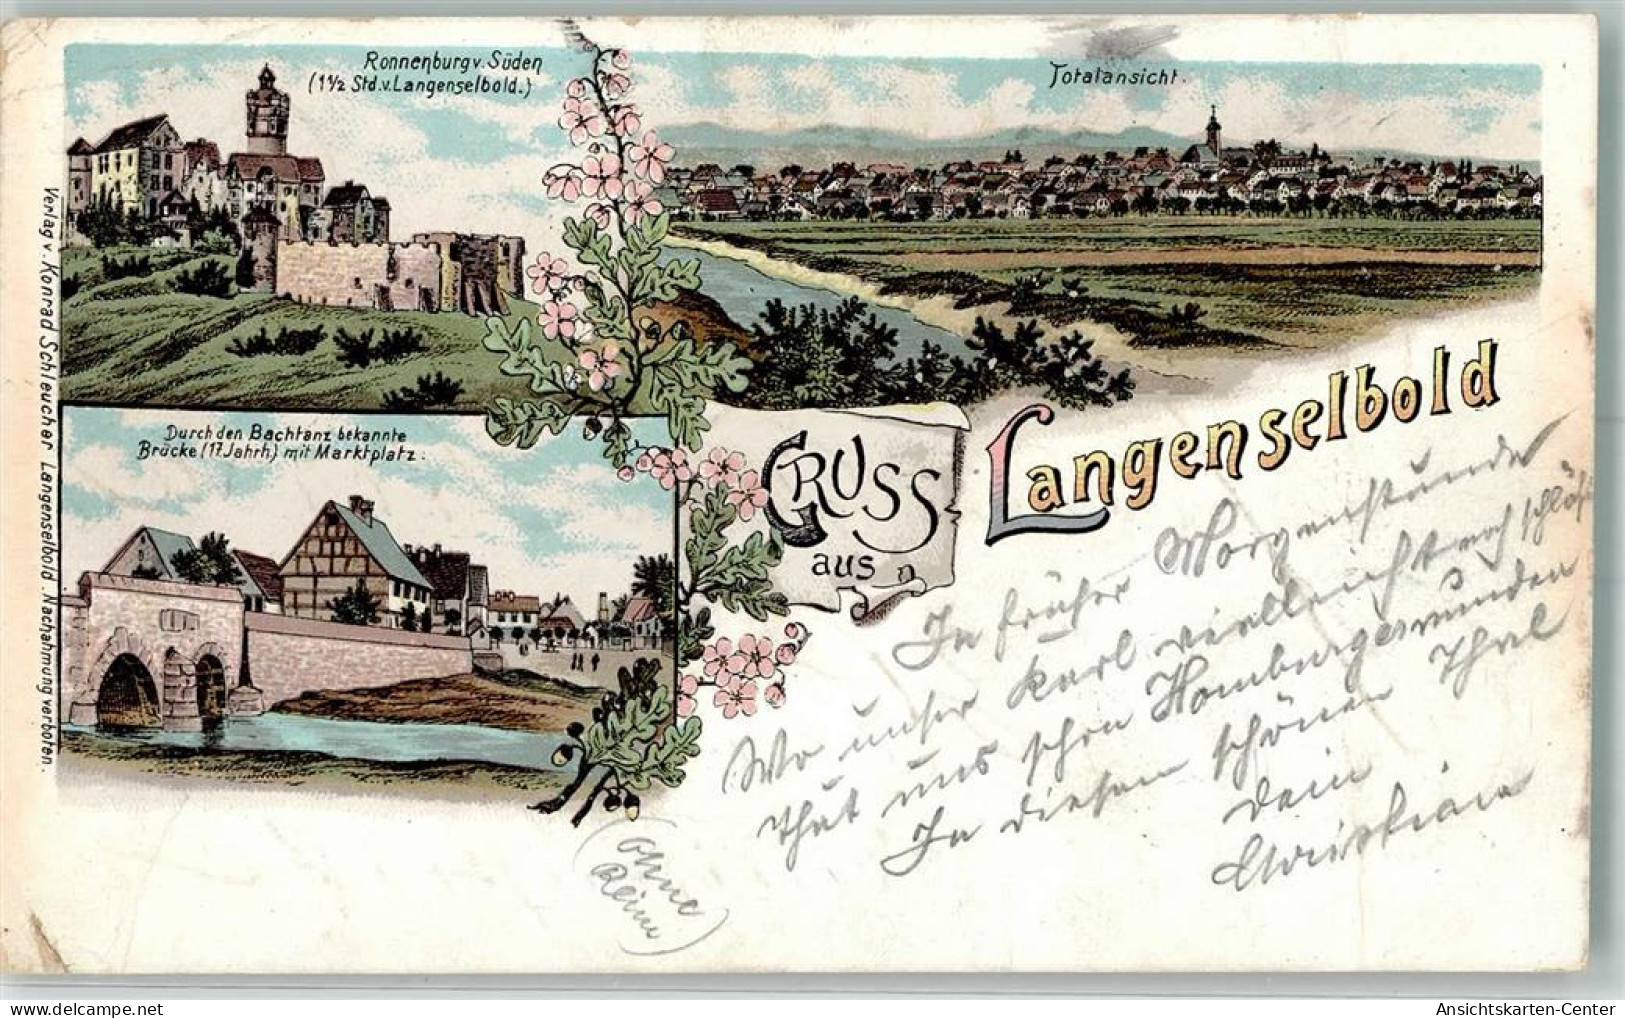 Ronnenburg v. Süden
(1½ Std. v. Langenselbold.)
Totalansicht.
Durch den Bachtanz bekannte
Brücke (17 Jahrh.) mit Marktplatz.
Verlag v. Konrad Schleucher Langenselbold. Nachahmung verboten.
GRUSS
aus
Langenselbold
In früher Morgenstunde
Wo unser Karl vielleicht noch schläft
That uns schon Homburger munden
In diesem schönen Thal
Dein
Christian
(Ohne
Reim)
Ansichtskarten-Center